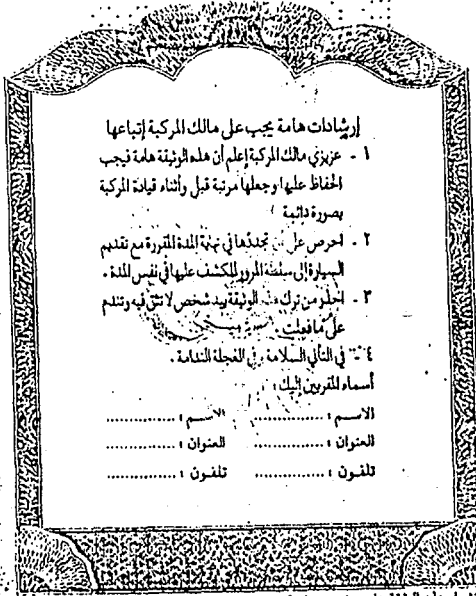 إرشادات هامة يجب على مالك المركبة إتباعها
١ - عزيزي مالك المركبة إعلم أن هذه الوثيقة هامة فيجب
الحفاظ عليها وجعلها مرتبة قبل وأثناء قيادة المركبة
بصورة دائمة
٢ - احرص على تجددها في نهاية المدة المقررة مع تقديم
السيارة إلى سلطة المرور للكشف عليها في نفس المدة .
٣ - احذر من ترك هذه الوثيقة بيد شخص لا تثق فيه وتندم
على ما فعلت .
٤ - في التأني السلامة وفي العجلة الندامة .
أسماء المقربين إليك :
الاسم : ............... الاسم : ...............
العنوان : ............... العنوان : ...............
تلفون : ............... تلفون : ...............